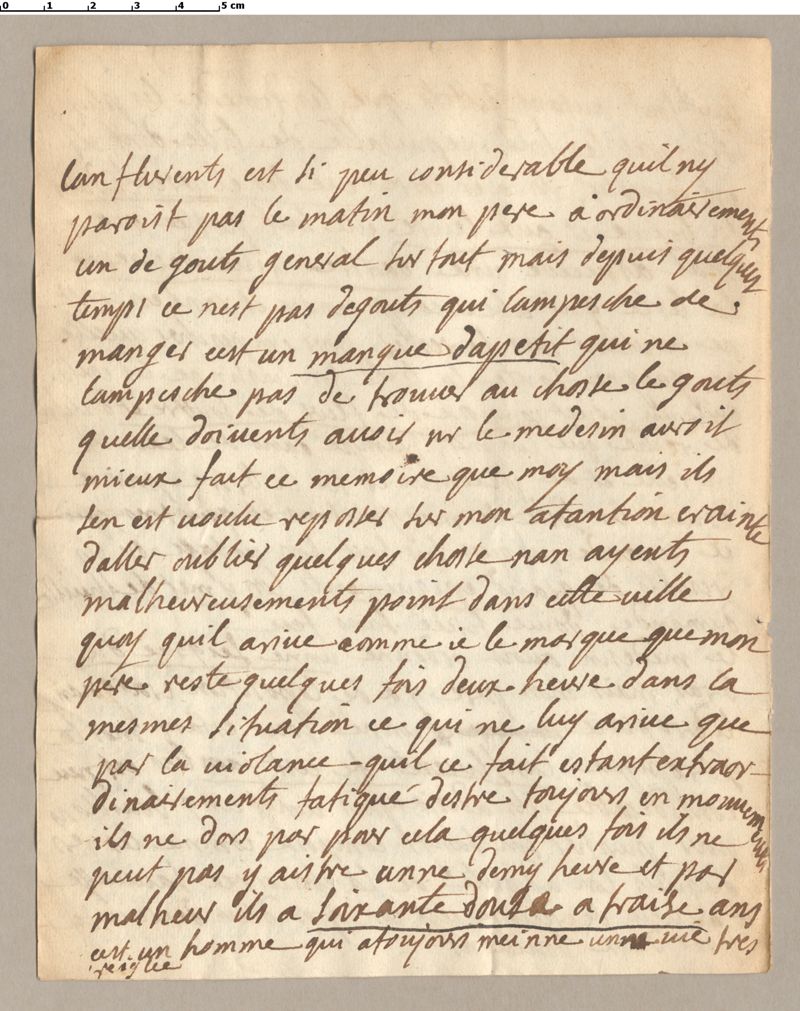 0 1 2 3 4 5 cm
lanflurents est si peu considerable quil ny
paroist pas le matin mon pere a ordinairements
un de gouts general sur tout mais depuis quelques
temps ce nest pas degouts qui lampesche de
manger cest un manque dapetit qui ne
lampesche pas de trouver au chosse le gouts
quelle doivents avoir mr le medesin auroit
mieux fait ce memoire que moy mais ils
sen est voulu reposser sur mon atantion crainte
daller oublier quelques chosse nan ayents
malheureusements point dans cette ville
quoy quil arive comme ie le marque que mon
pere reste quelques fois deux heure dans la
mesmes situation ce qui ne luy arive que
par la violance quil ce fait estant extraor-
dinairements fatiqué destre toujours en mouvements
ils ne dors par pour cela quelques fois ils ne
peut pas y aistre unne demy heure et par
malheur ils a soixante douse a fraise ans
est un homme qui a toujours meinne unne vie tres
reiglee